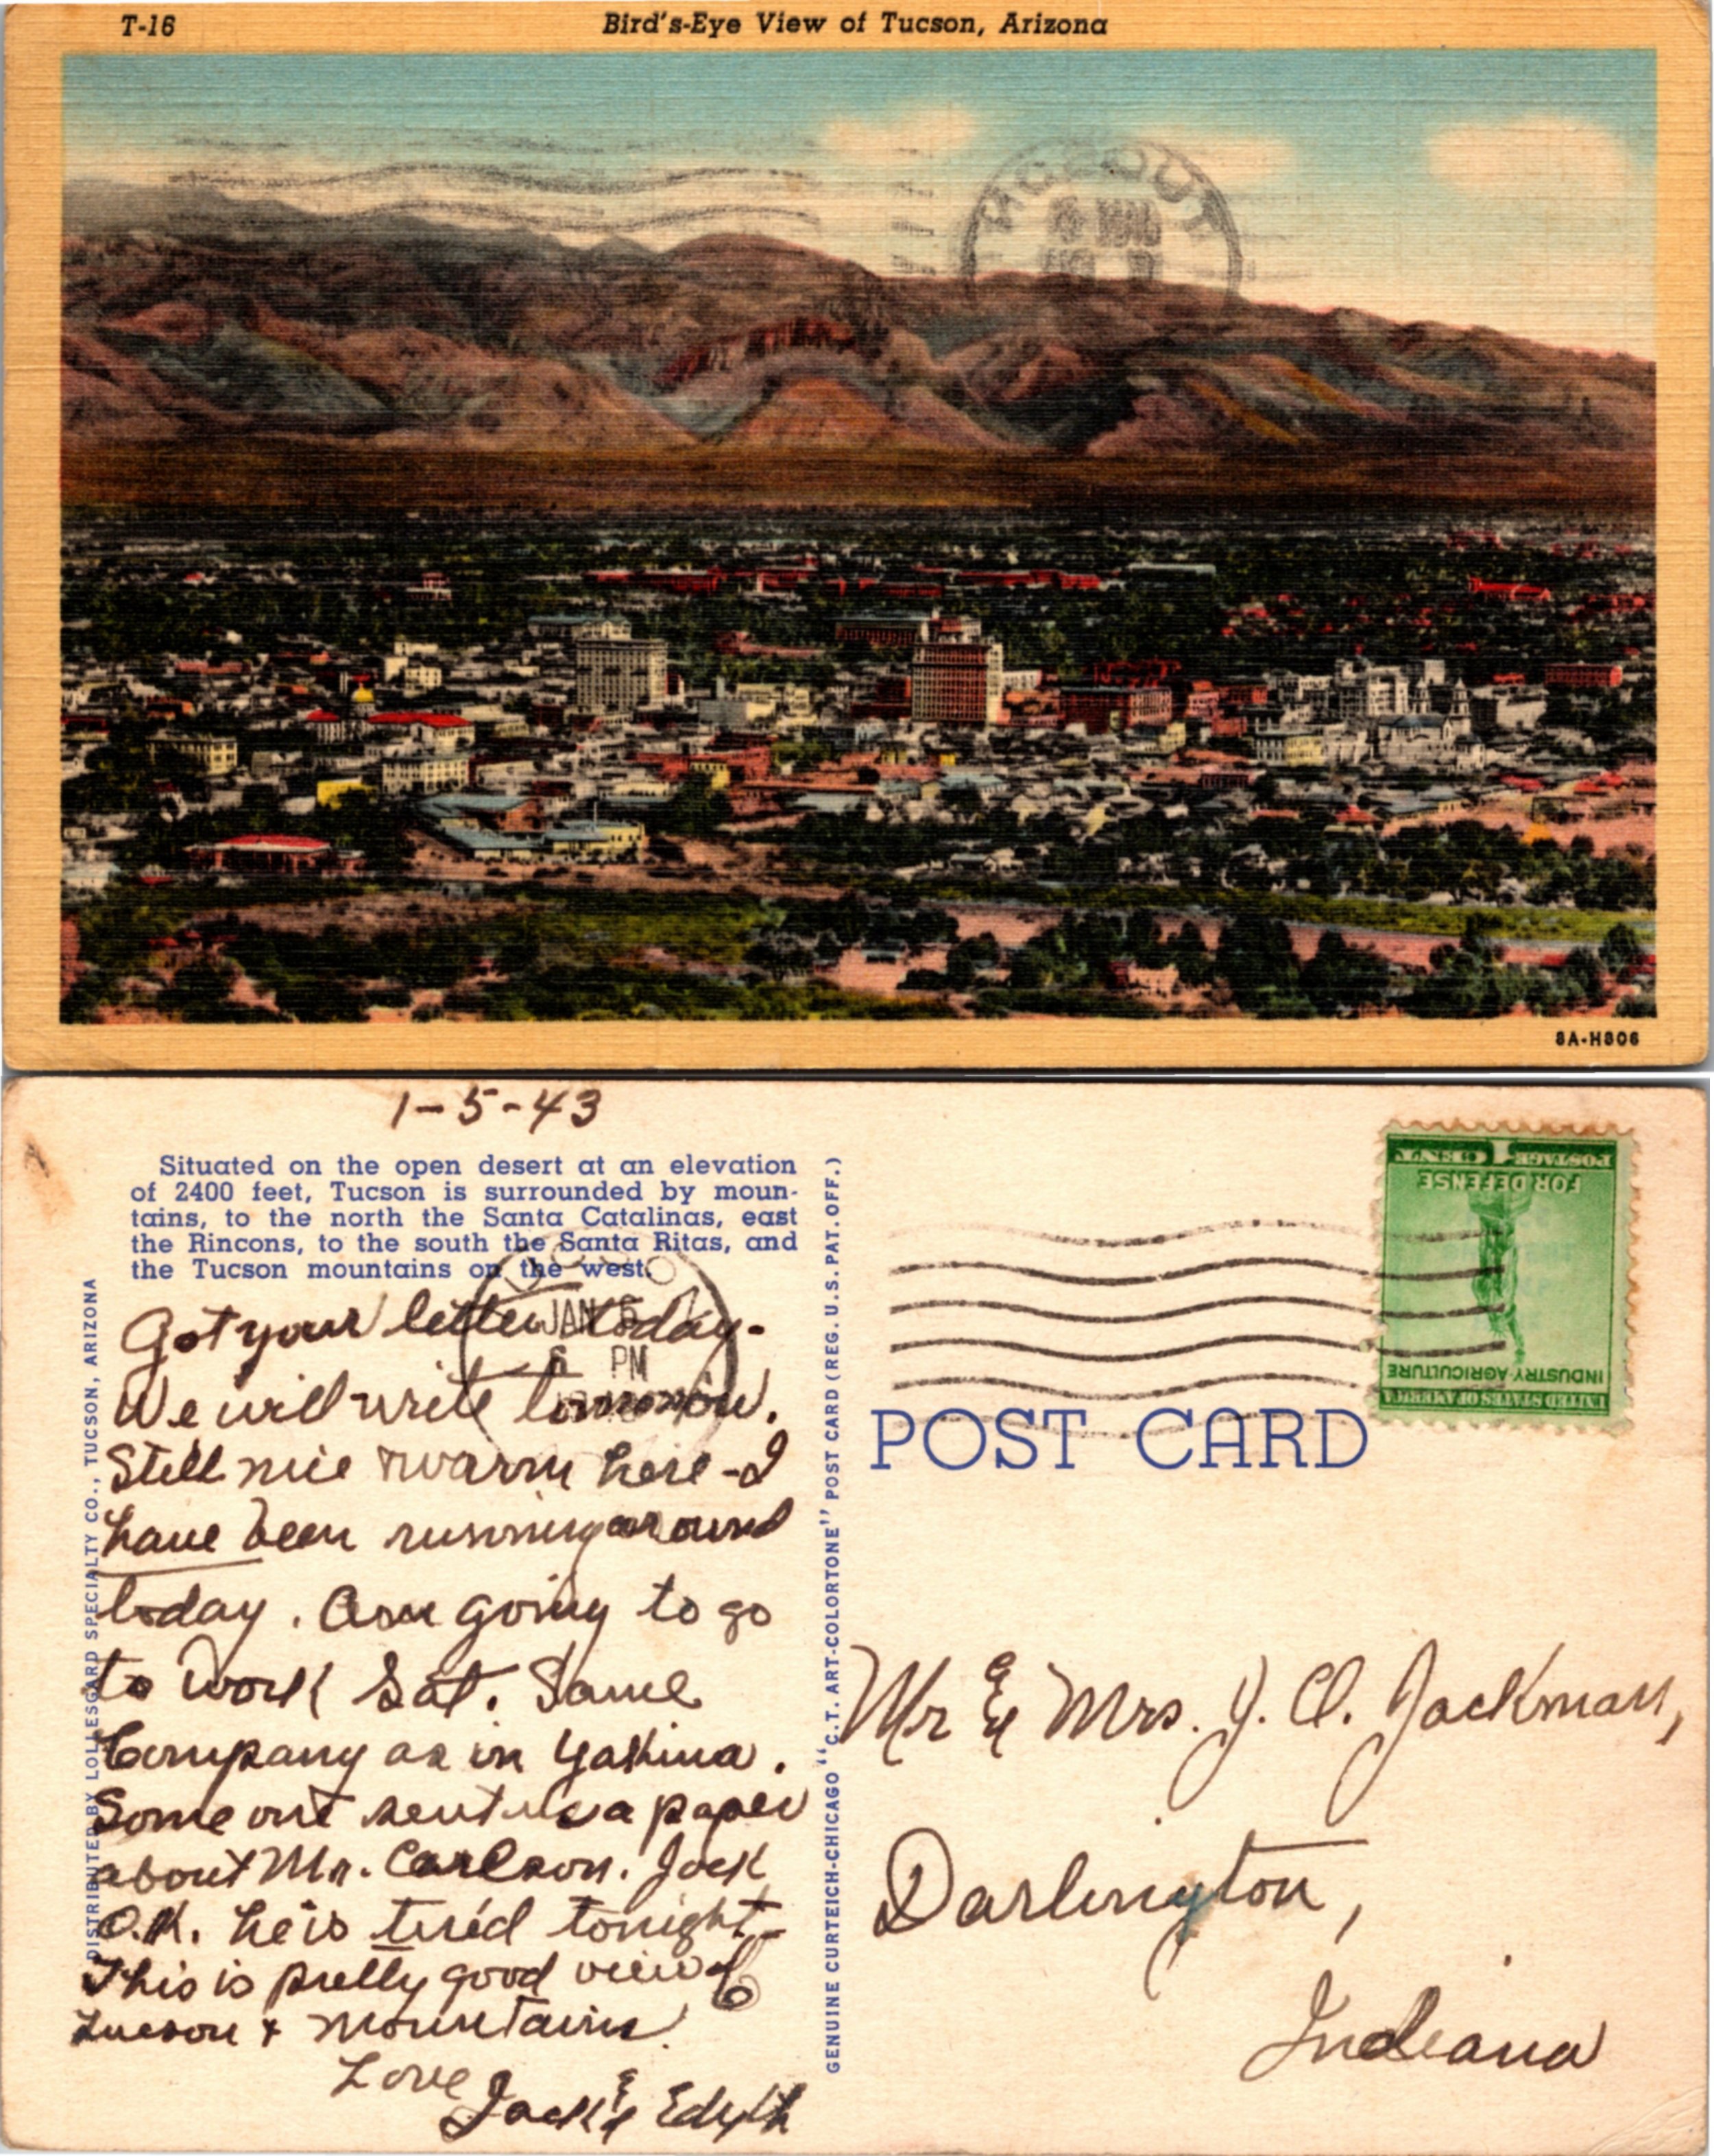 T-16
Bird's-Eye View of Tucson, Arizona
TUCSON
8A-H806
1-5-43
Situated on the open desert at an elevation
of 2400 feet, Tucson is surrounded by moun-
tains, to the north the Santa Catalinas, east
the Rincons, to the south the Santa Ritas, and
the Tucson mountains on the west.
JAN 5
6 PM
Got your letter today-
We will write tomorrow.
Still nice & warm here - I
have been running around
today. Am going to go
to work Sat. Same
Company as in Yakima.
Some one sent us a paper
about Mr. Carlson. Jack
O.K. he is tired tonight-
This is pretty good view of
Tucson & mountains.
Love
Jack & Edyth
DISTRIBUTED BY LOLLESGARD SPECIALTY CO., TUCSON, ARIZONA
GENUINE CURTEICH-CHICAGO "C.T. ART-COLORTONE" POST CARD (REG. U.S. PAT. OFF.)
POSTAGE 1 CENT
FOR DEFENSE
INDUSTRY AGRICULTURE
UNITED STATES OF AMERICA
POST CARD
Mr & Mrs. J. O. Jackman,
Darlington,
Indiana